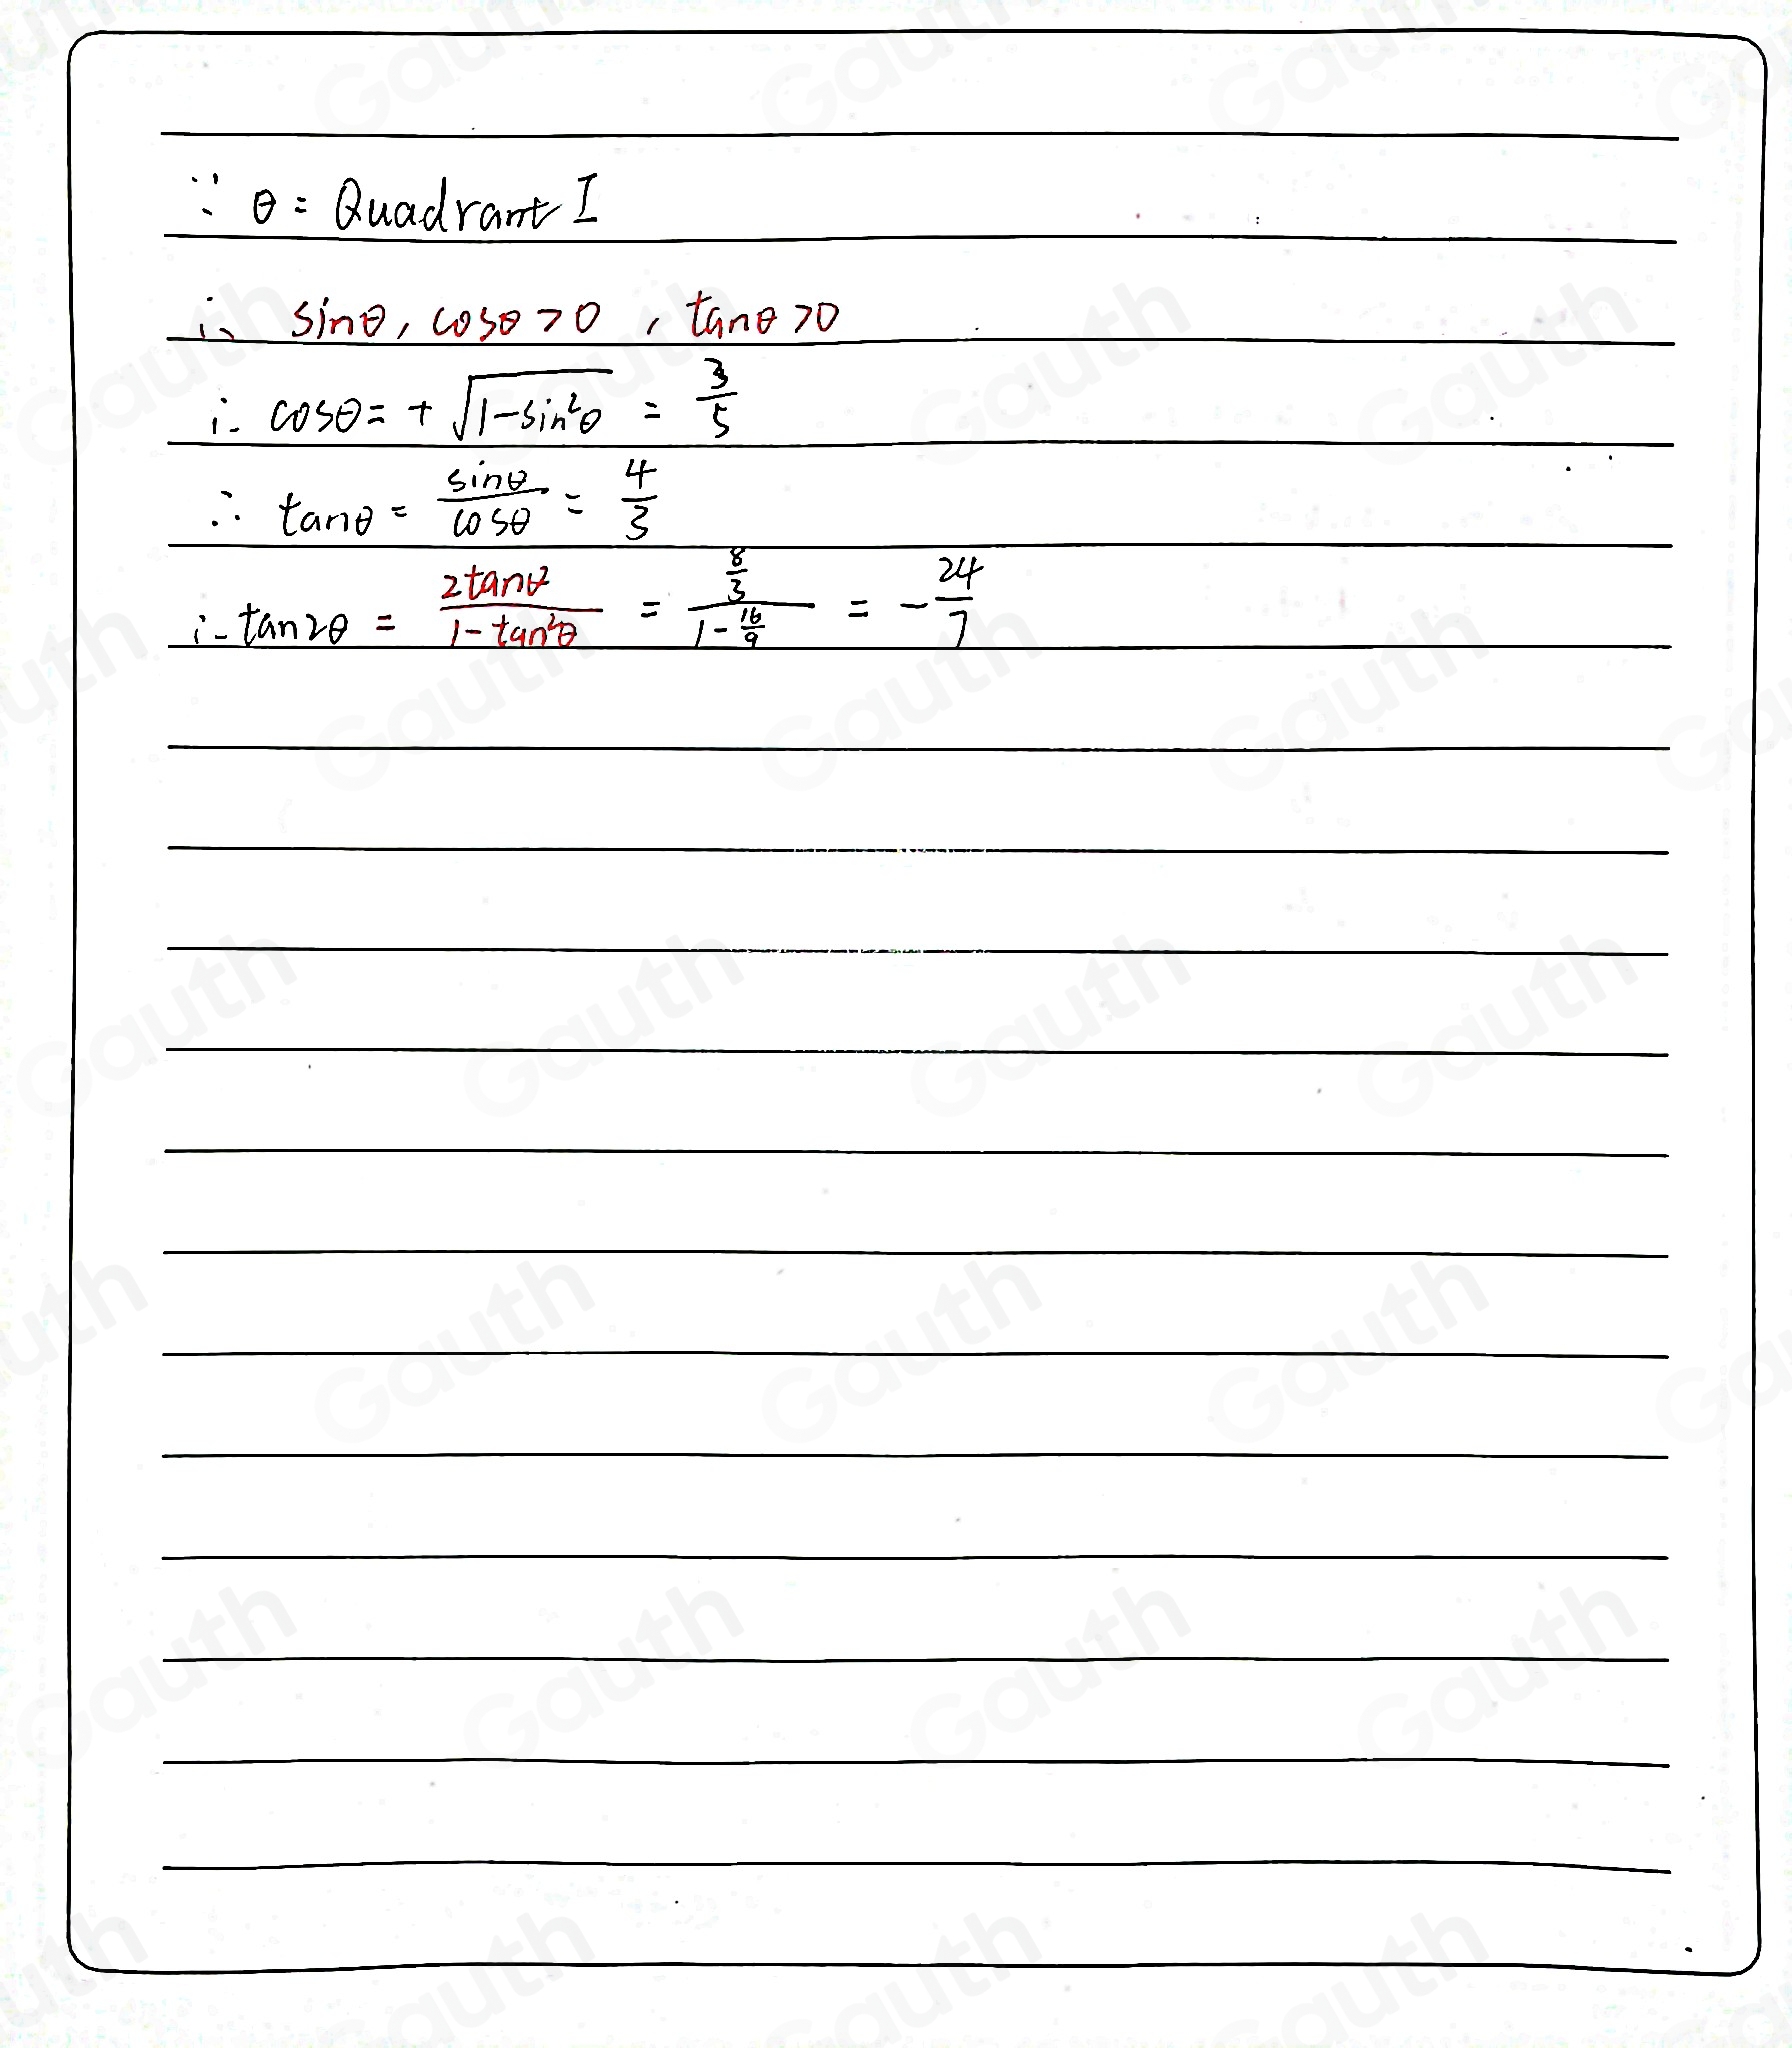 ∵ θ = Quadrant I
∴ sinθ, cosθ > 0, tanθ > 0
∴ cosθ = + √(1-sin²θ) = 3/5
∴ tanθ = sinθ/cosθ = 4/3
∴ tan2θ = 2tanθ/(1-tan²θ) = (8/3)/(1-16/9) = -24/7